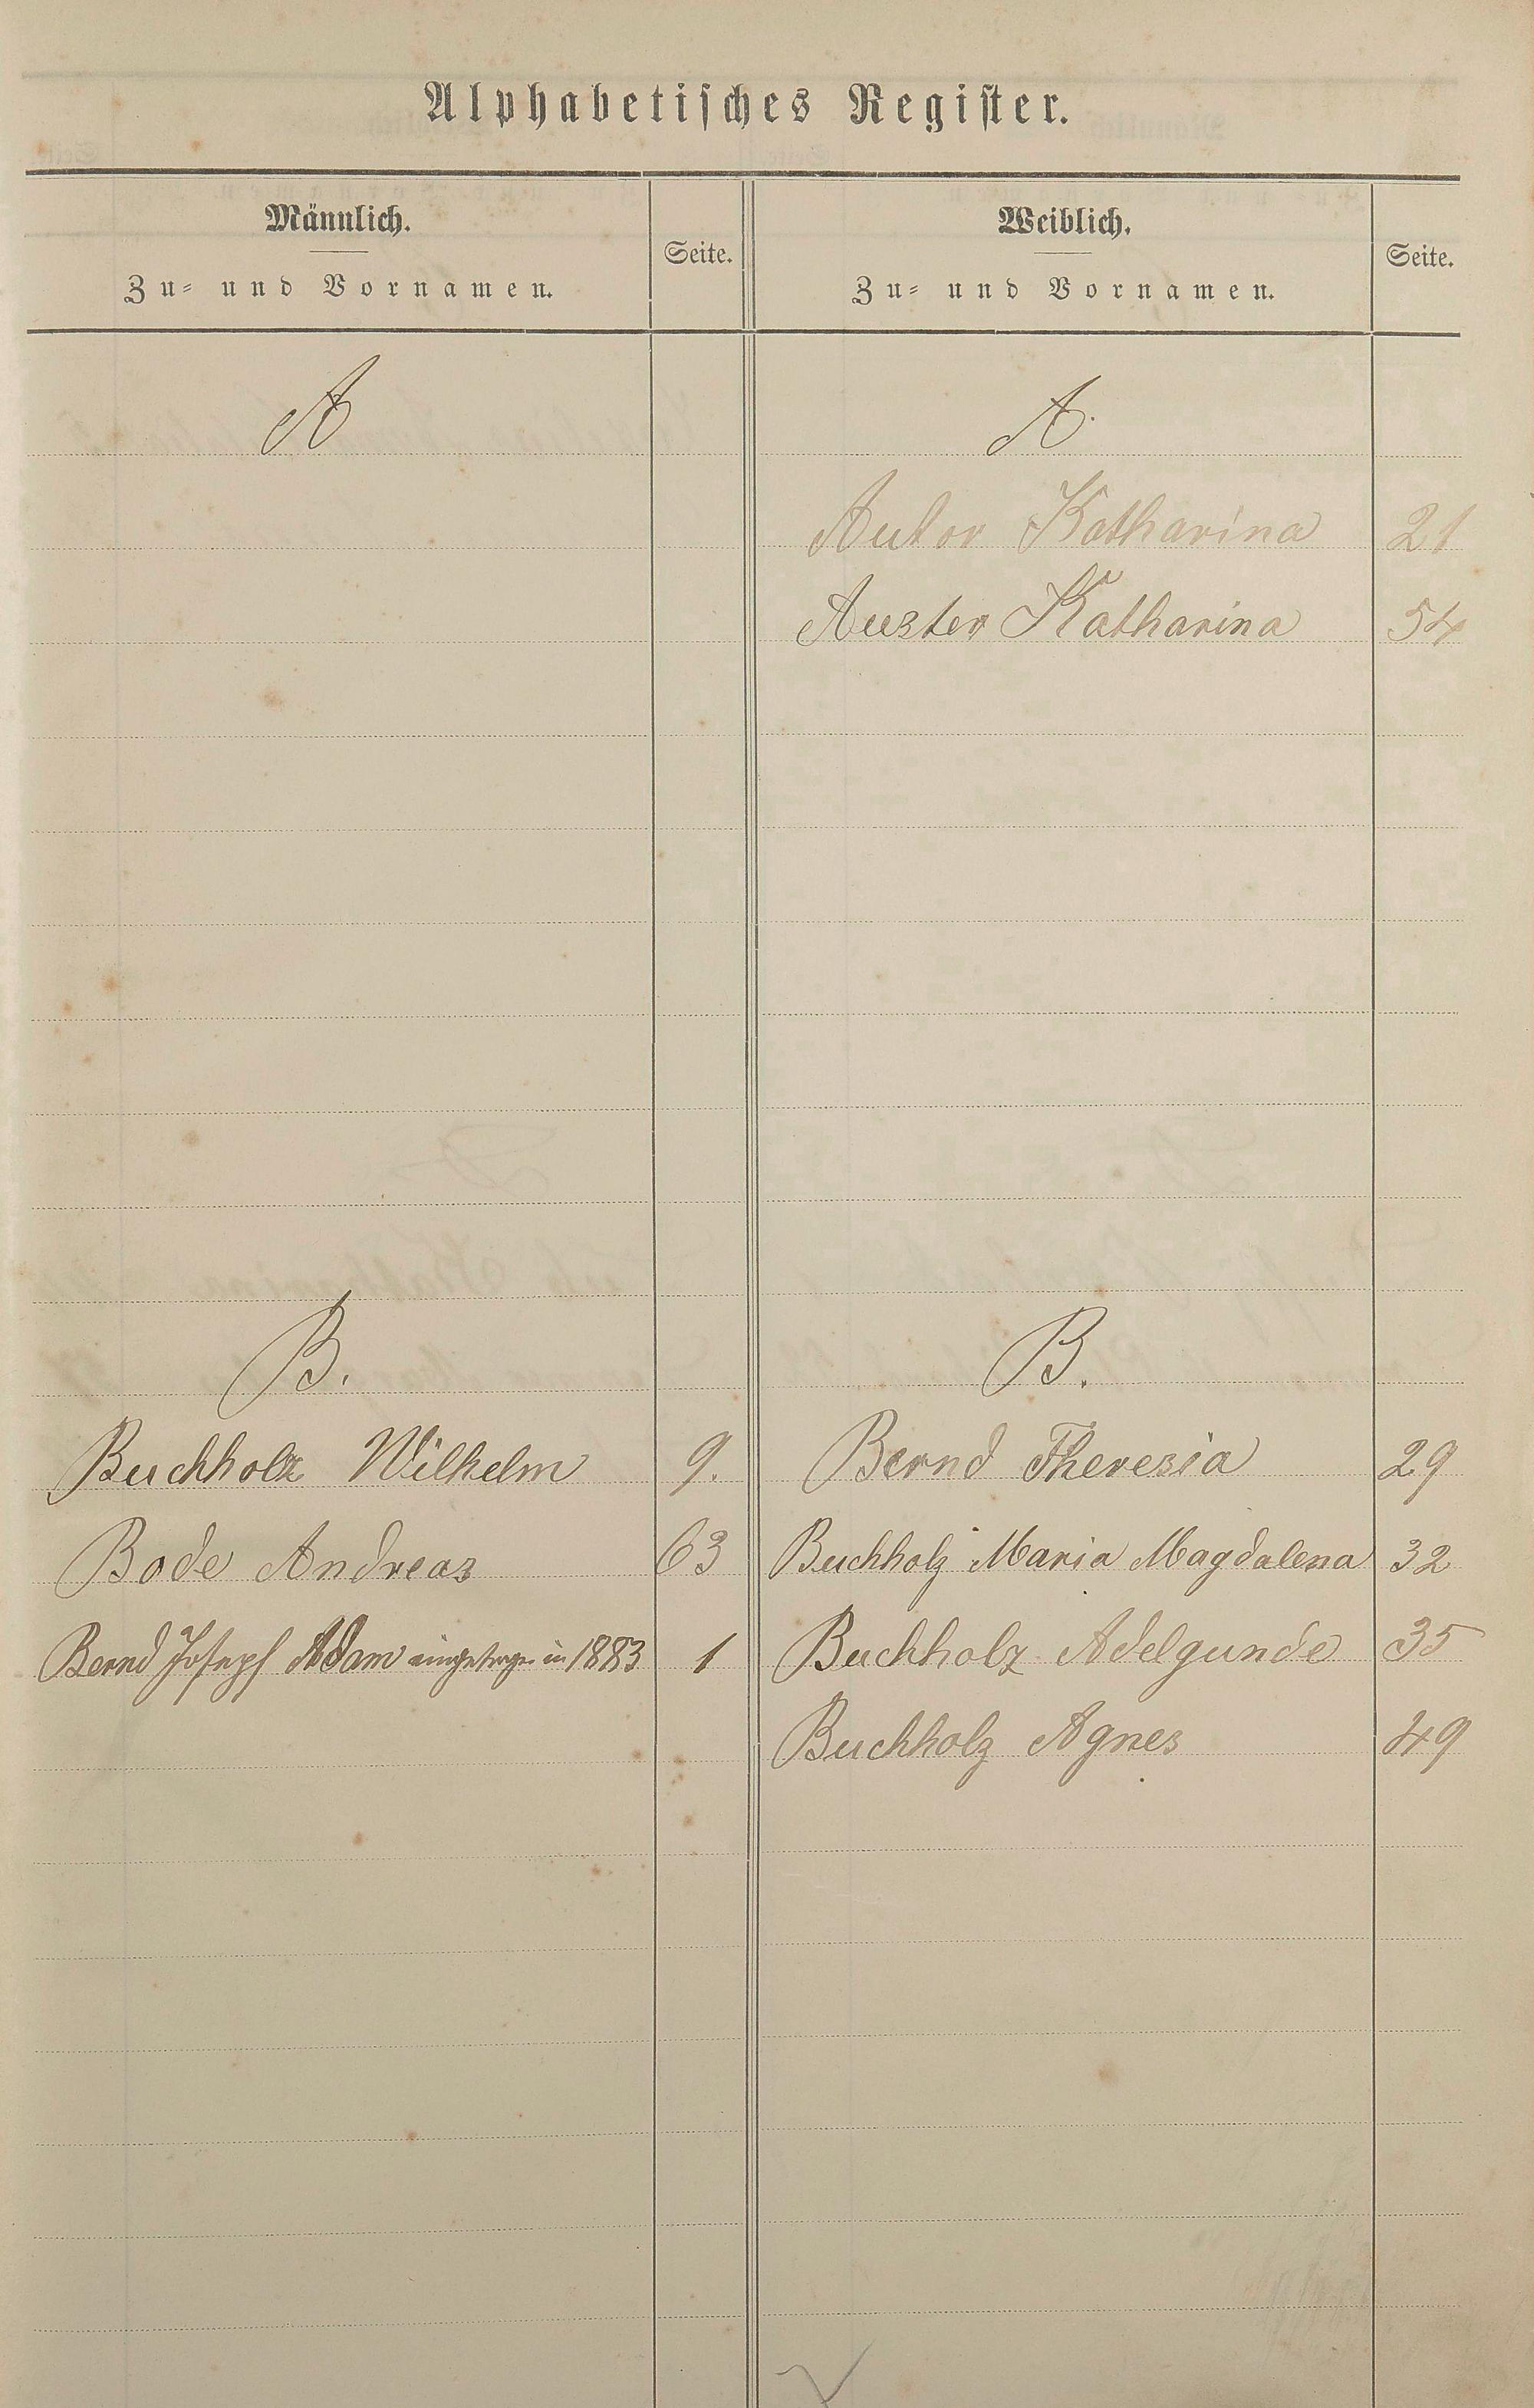 Alphabetisches Register.
Männlich.
Zu- und Vornamen.
Seite.
Weiblich.
Zu- und Vornamen.
Seite.
A
A.
Autor Katharina 21
Auster Katharina 54
B.
Buchholz Wilhelm 9.
Bode Andreas 63
Bernd Joseph Adam eingetragen in 1883 1
B.
Bernd Theresia 29
Buchholz Maria Magdalena 32
Buchholz Adelgunde 35
Buchholz Agnes 49